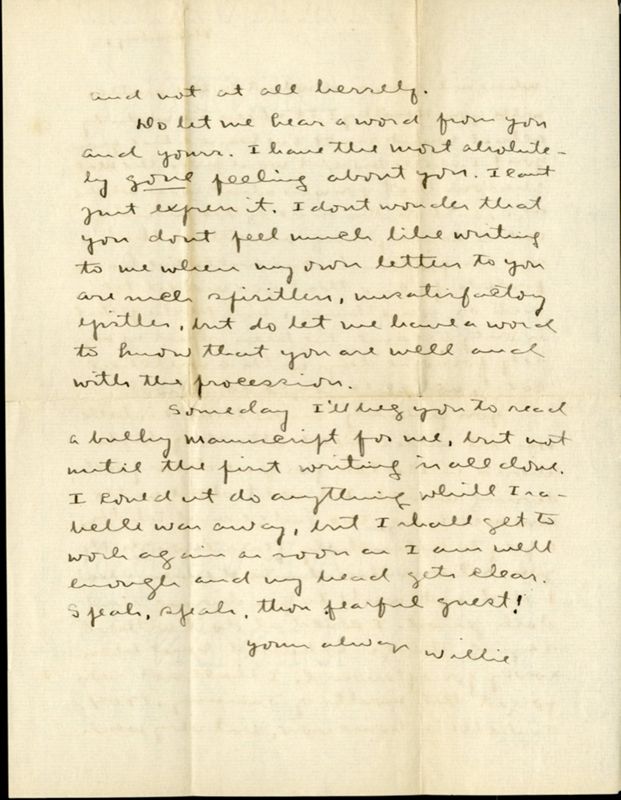 and not at all herself.
Do let me hear a word from you
and yours. I have the most absolute-
ly gone feeling about you. I cant
just express it. I dont wonder that
you dont feel much like writing
to me when my own letters to you
are such spiritless, unsatisfactory
epistles, but do let me have a word
to know that you are well and
with the procession.
Someday I'll beg you to read
a bulky manuscript for me, but not
until the first writing is all done.
I could nt do anything while Isa-
belle was away, but I shall get to
work again as soon as I am well
enough and my head gets clear.
Speak, speak, thou fearful guest!
yours always Willie